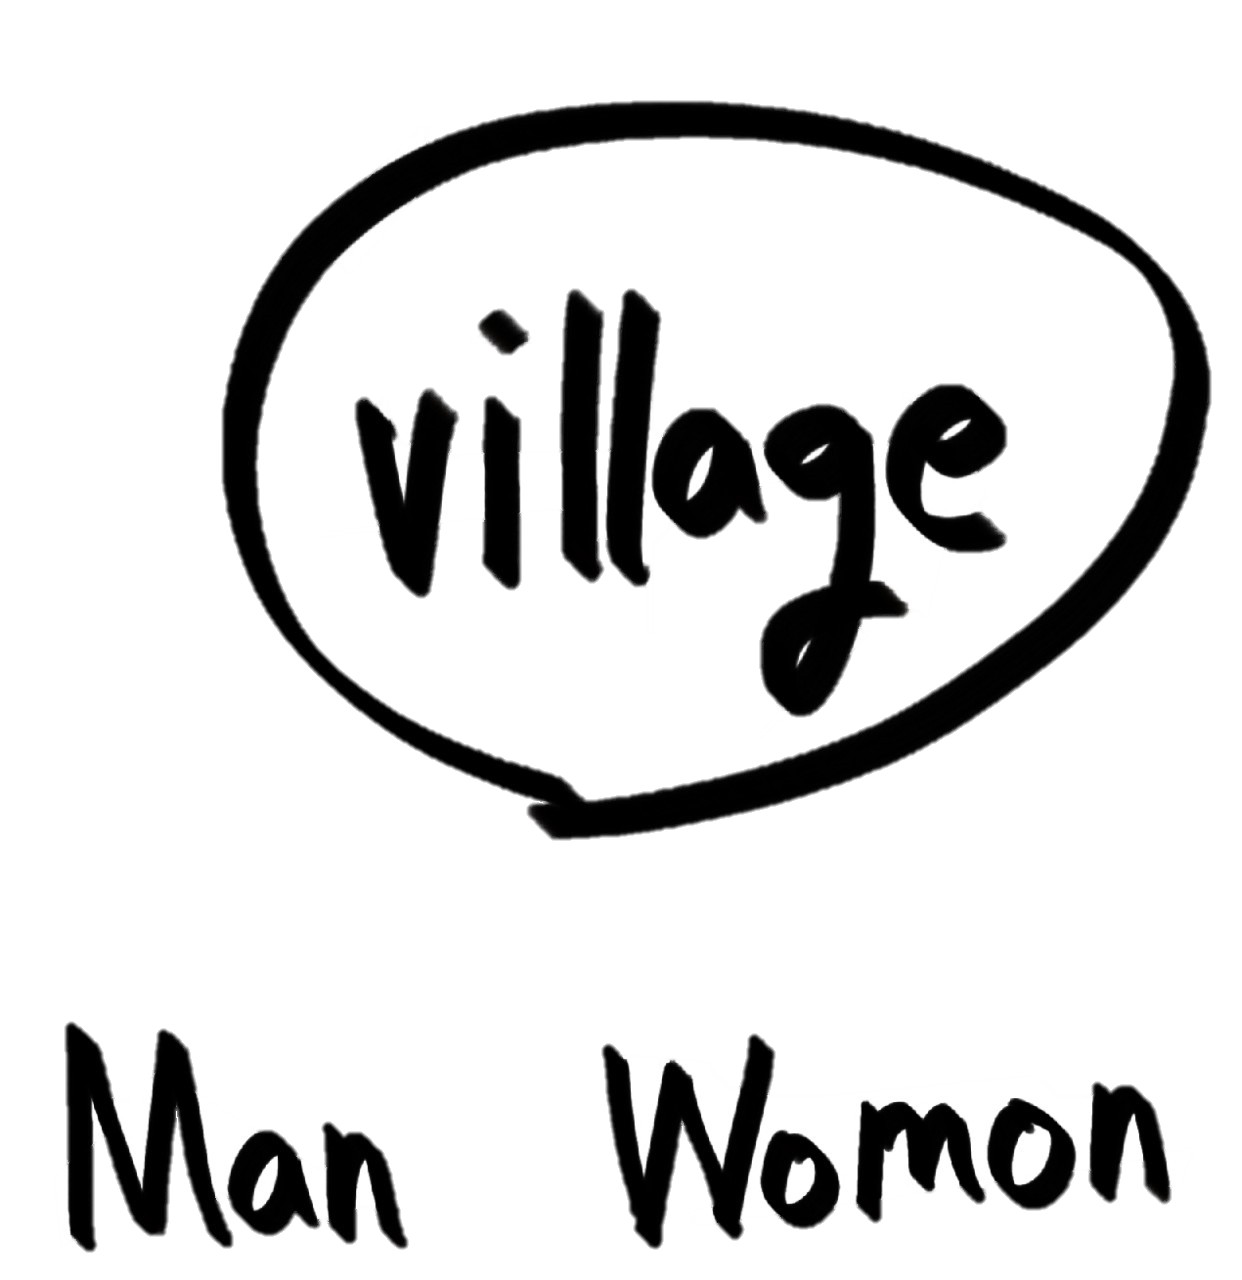 village
Man Womon